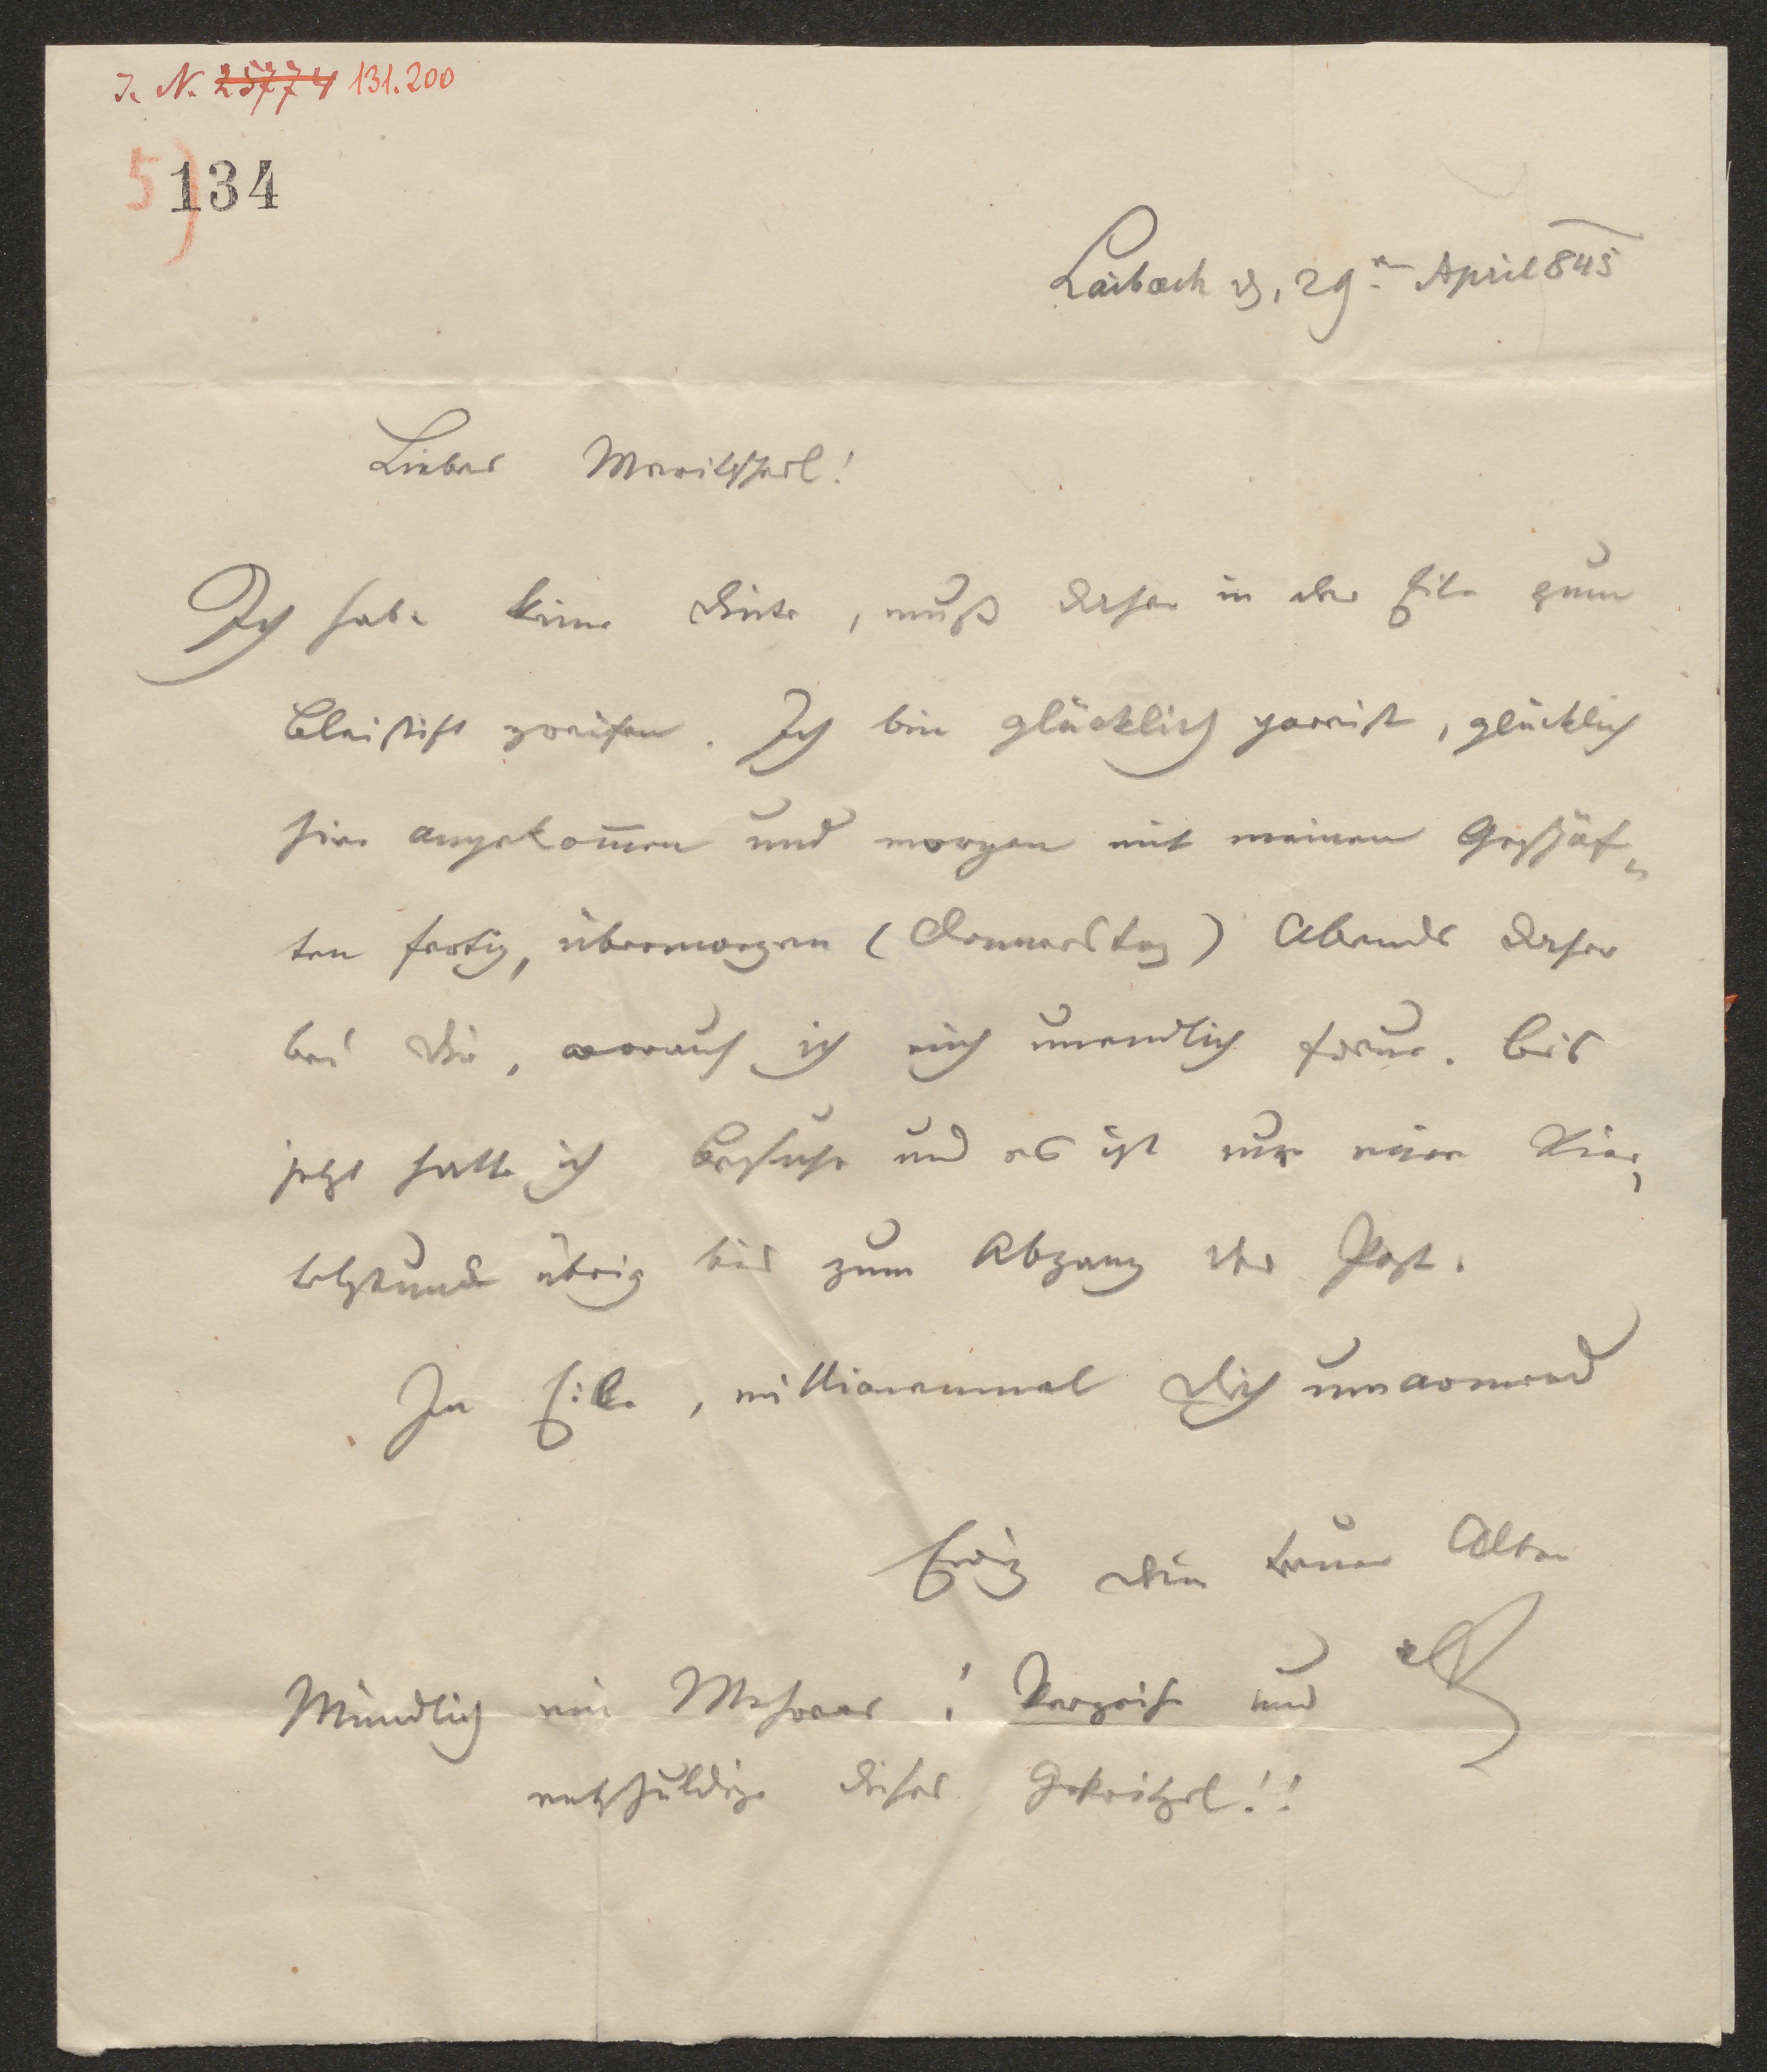 I. N. 25774 131.200
5) 134
Laibach d, 29n April 845
Liebes Mariescherl!
Ich habe keine Dinte, muß daher in der Eile zum
Bleistift greifen. Ich bin glücklich gereist, glücklich
hier angekom̅en und morgen mit meinen Geschäf„
ten fertig, übermorgen (Donnerstag) Abends daher
bei Dir, worauf ich mich unendlich freue. Bis
jetzt hatte ich Besuche und es ist nur eine Vier„
telstunde übrig bis zum Abgang der Post.
In Eile, millionenmal Dich umarmend
Ewig Dein treuer Alter
Mündlich ein Mehreres! Verzeihe und
entschuldige dieses Gekritzel!!